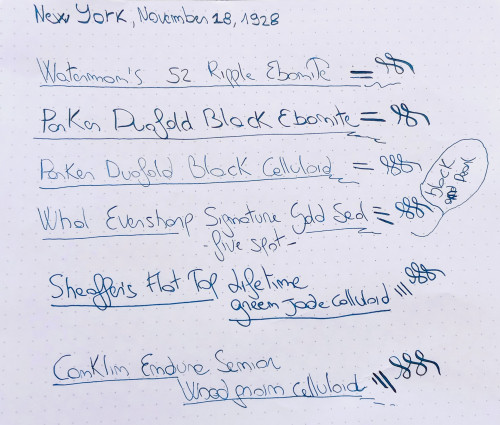 New York, November 28, 1928
Waterman's 52 Ripple Ebonite
Parker Duofold Black Ebonite
Parker Duofold Black Celluloid
Whal Eversharp Signature Gold Seal
- five spot -
black and Pearl
Sheaffer's Flat Top Lifetime
green jade celluloid
Conklin Endura Senior
Wood grain celluloid